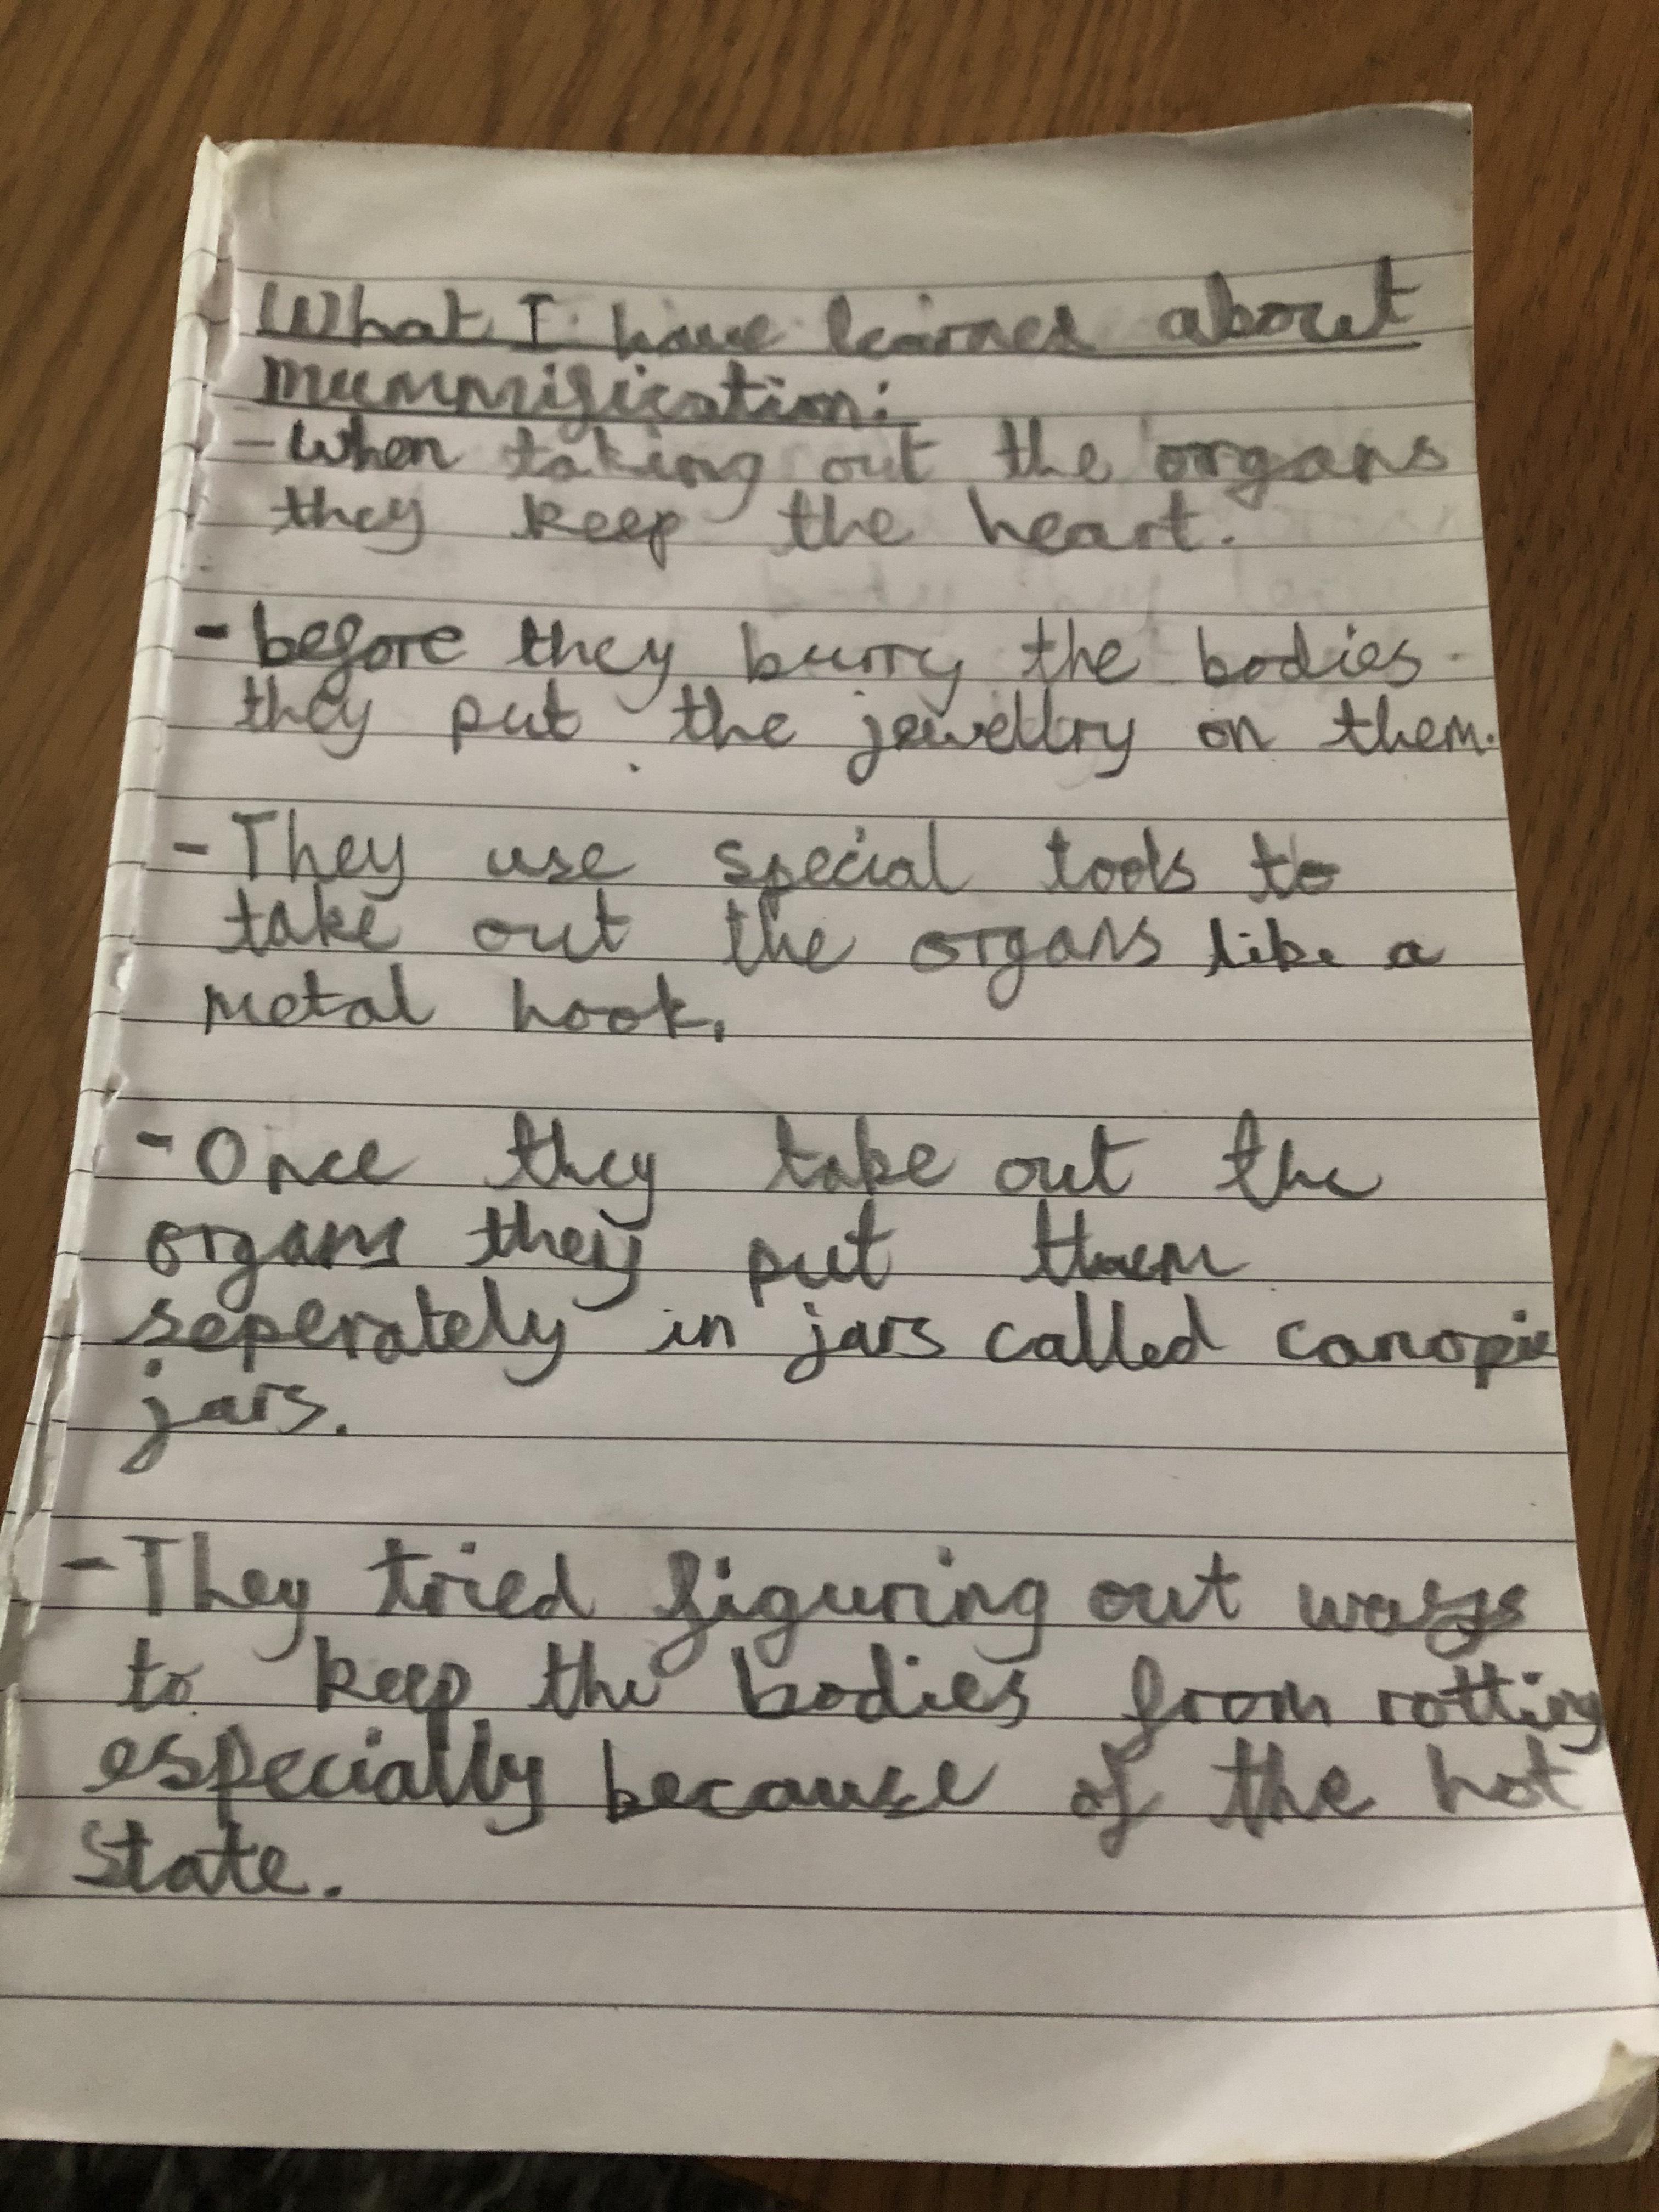 What I have learned about
mummification:
- When taking out the organs
they keep the heart.
- before they burry the bodies
they put the jewellry on them.
- They use special tools to
take out the organs like a
metal hook.
- Once they take out the
organs they put them
seperately in jars called canopic
jars.
- They tried figuring out ways
to keep the bodies from rotting
especially because of the hot
state.